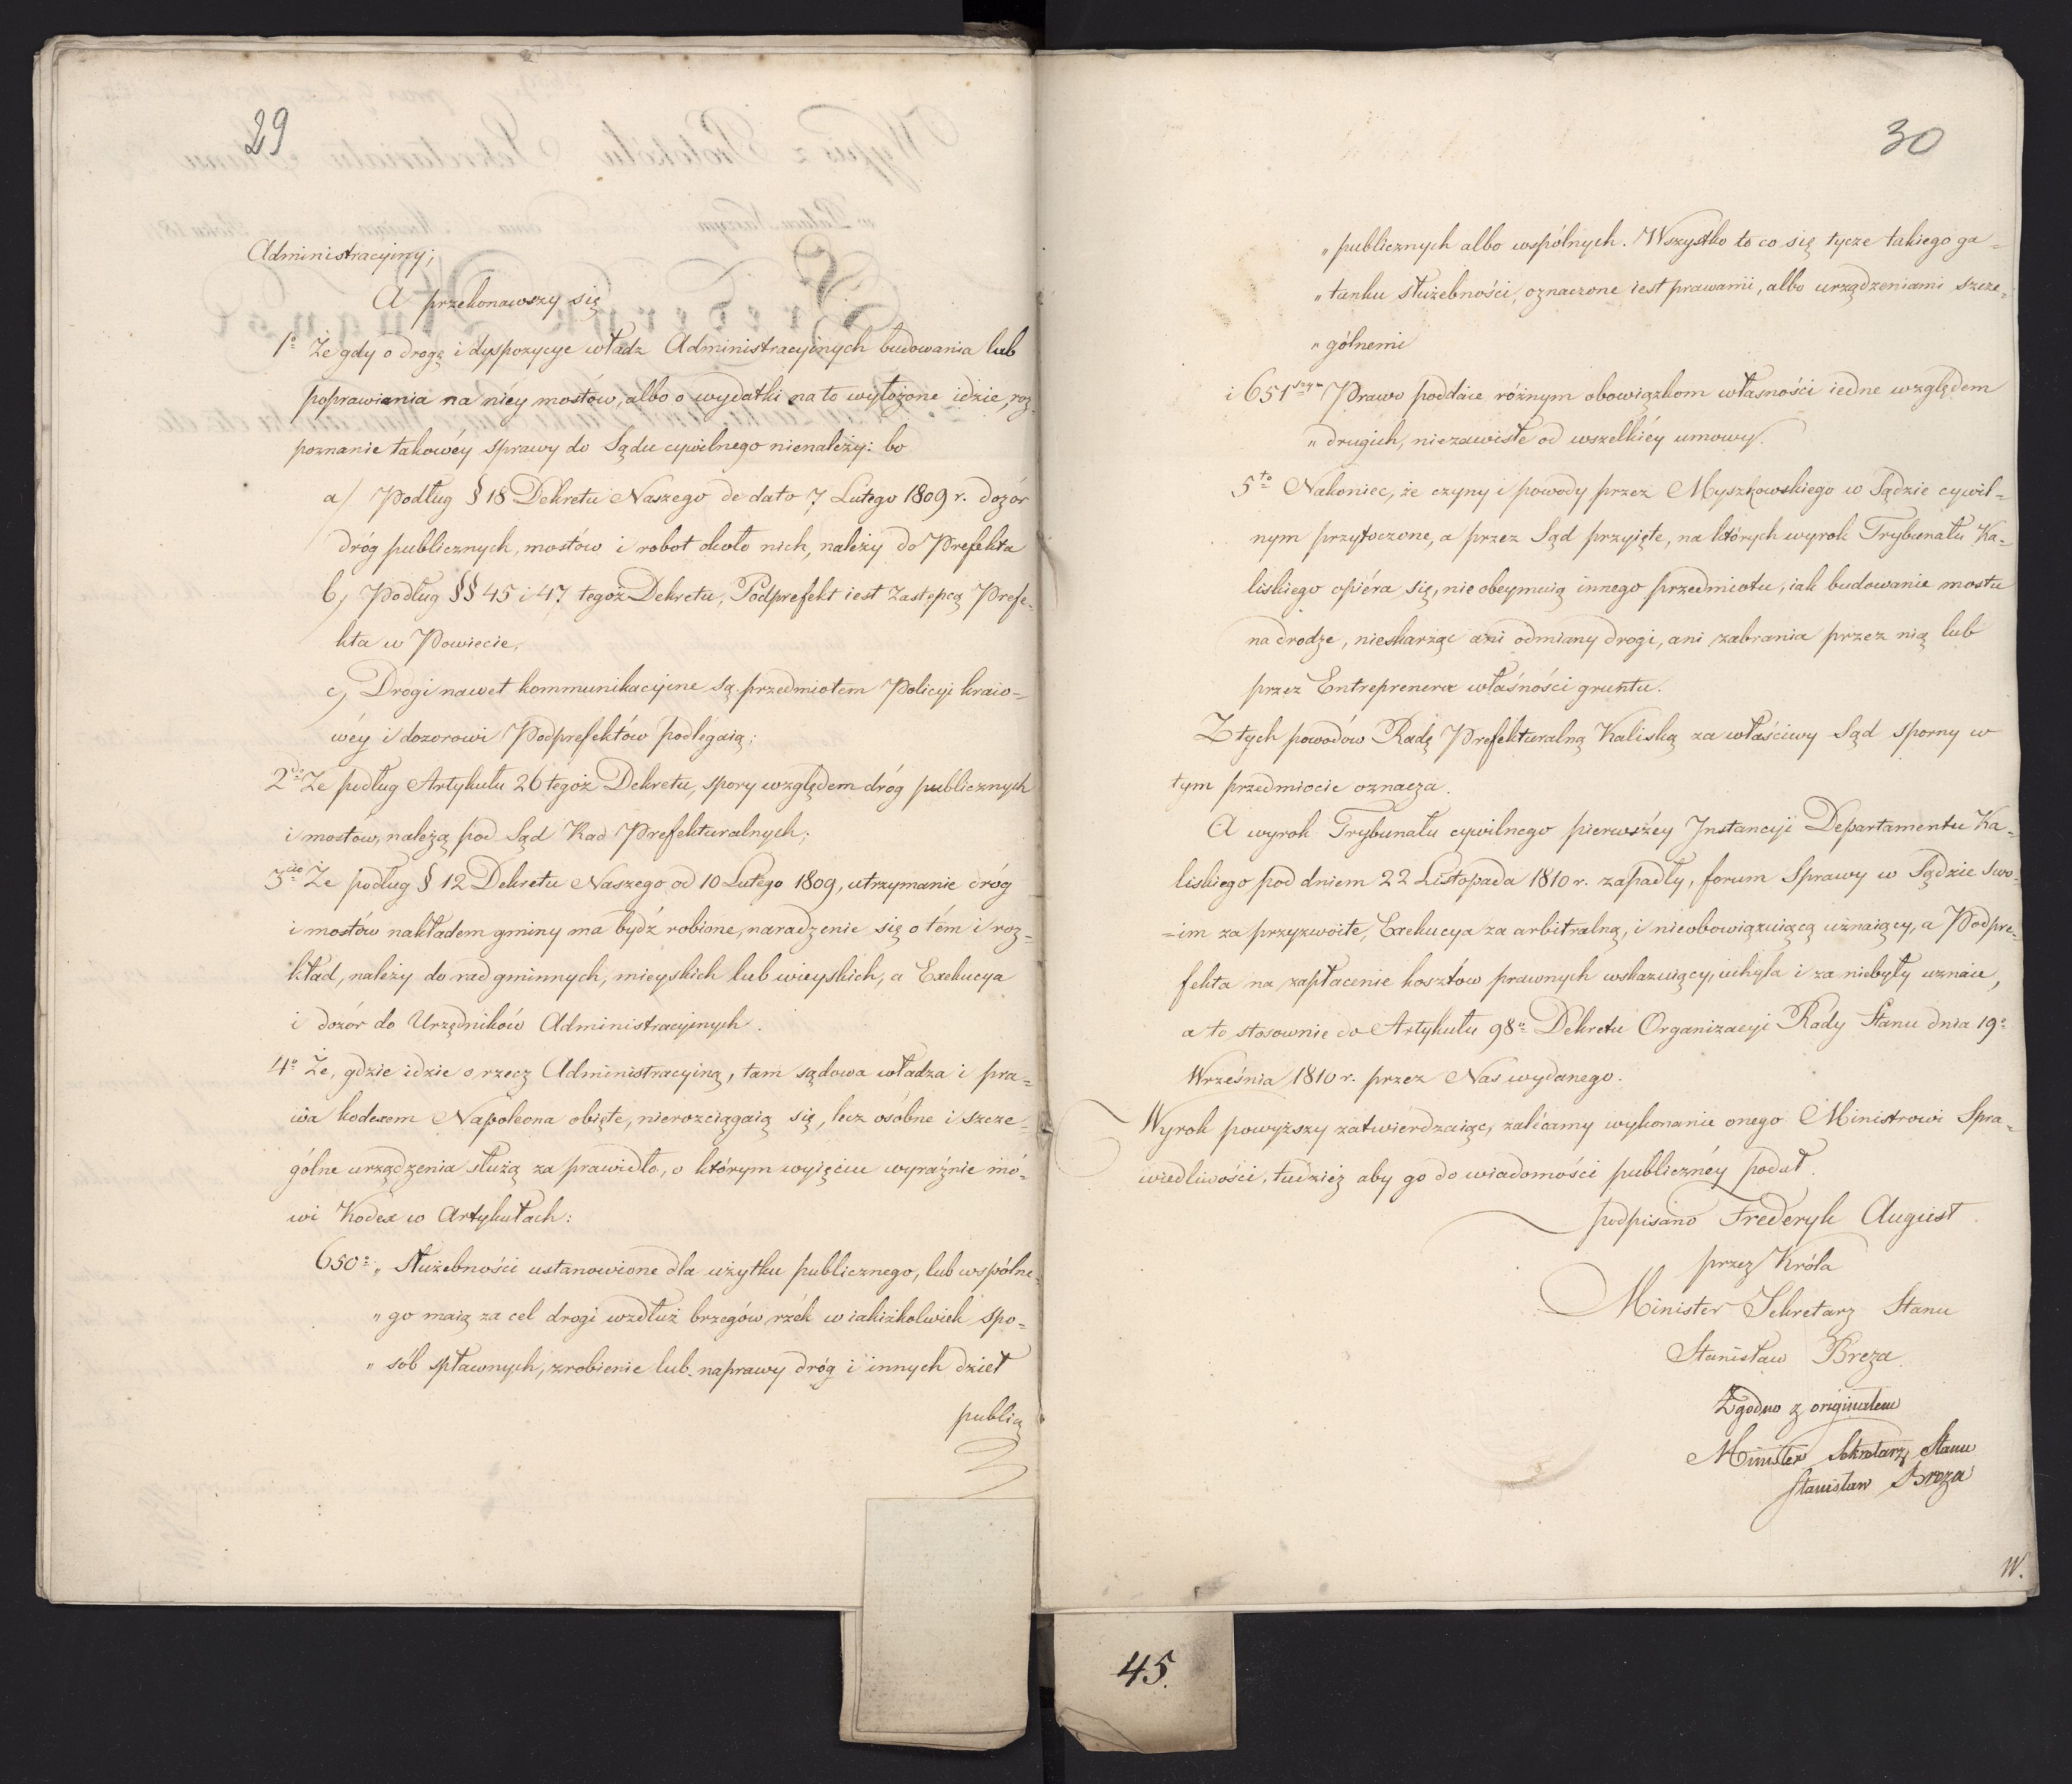 29
Administracyiny;
A przekonawszy się
1° Że gdy o drogę i dyspozycye władz Administracyinych budowania lub
poprawiania na niéy mostów, albo o wydatki na to wyłożone idzie, roz-
poznanie takowéy sprawy do Sądu cywilnego nienależy: bo
a/ Podług § 18 Dekretu Naszego de dato 7 Lutego 1809 r. dozór
dróg publicznych, mostów i robot około nich, należy do Prefekta
b, Podług §§ 45 i 47 tegoż Dekretu, Podprefekt iest Zastępcą Prefe-
kta w Powiecie,
c, Drogi nawet kommunikacyine są przedmiotem Policyi kraio-
wéy i dozorowi Podprefektów podlegaią;
2do Że podług Artykułu 26 tegoż Dekretu, spory względem dróg publicznych
i mostów, należą pod Sąd Rad Prefekturalnych;
3cio Że podług § 12 Dekretu Naszego od 10 Lutego 1809, utrzymanie dróg
i mostów nakładem gminy ma bydź robione, naradzenie się o tém i roz-
kład, należy do rad gminnych, mieyskich lub wieyskich, a Exekucya
i dozór do Urzędników Administracyinych.
4° Że, gdzie idzie o rzecz Administracyiną, tam sądowa władza i pra-
wa kodexem Napoleona obięte, nierozciągaią się, lecz osóbne i szcze-
gólne urządzenia służą za prawidło, o którym wyięciu wyraźnie mó-
wi Kodex w Artykułach:
650° „ Służebności ustanowione dla użytku publicznego, lub wspólne-
„ go maią za cel drogi wzdłuż brzegów rzék w iakiżkolwiek spo-
„ sób spławnych, zrobienie lub naprawy dróg i innych dzieł
public
30
„ publicznych albo wspólnych. Wszystko to co się tycze takiego ga-
„ tunku służebności, oznaczone iest prawami, albo urządzeniami szcze-
„ gólnemi
i 651szym Prawo poddaie różnym obowiązkom własności iedne względem
„ drugich, niezawisłe od wszelkiéy umowy.
5to Nakoniec, że czyny i powody przez Myszkowskiego w Sądzie cywil-
nym przytoczone, a przez Sąd przyięte, na których wyrok Trybunału Ka-
liskiego opiéra się, nie obeymuią innego przedmiotu, iak budowanie mostu
na drodze, nieskarżąc ani odmiany drogi, ani zabrania przez nią lub
przez Entreprenera własności gruntu.
Z tych powodów Radę Prefekturalną Kaliską za właściwy Sąd sporny w
tym przedmiocie oznacza.
A wyrok Trybunału cywilnego pierwszéy Jnstancyi Departamentu Ka-
liskiego pod dniem 22 Listopada 1810 r. zapadły, forum Sprawy w Sądzie swo-
=im za przyzwoite, Exekucya za arbitralną, i nieobowiązuiącą uznaiący, a Podpre-
fekta na zapłacenie kosztów prawnych wskazuiący, uchyla i za niebyły uznaie,
a to stosownie do Artykułu 98° Dekretu Organizacyi Rady Stanu dnia 19°
Września 1810 r. przez Nas wydanego.
Wyrok powyższy zatwierdzaiąc, zalécamy wykonanie onego Ministrowi Spra-
wiedliwości, tudzież aby go do wiadomości publicznéy podał.
podpisano Frederyk August
przez Króla
Minister Sekretarz Stanu
Stanisław Breza
Zgodno z originałem
Minister Sekretarz Stanu
Stanisław Breza
W.
45.